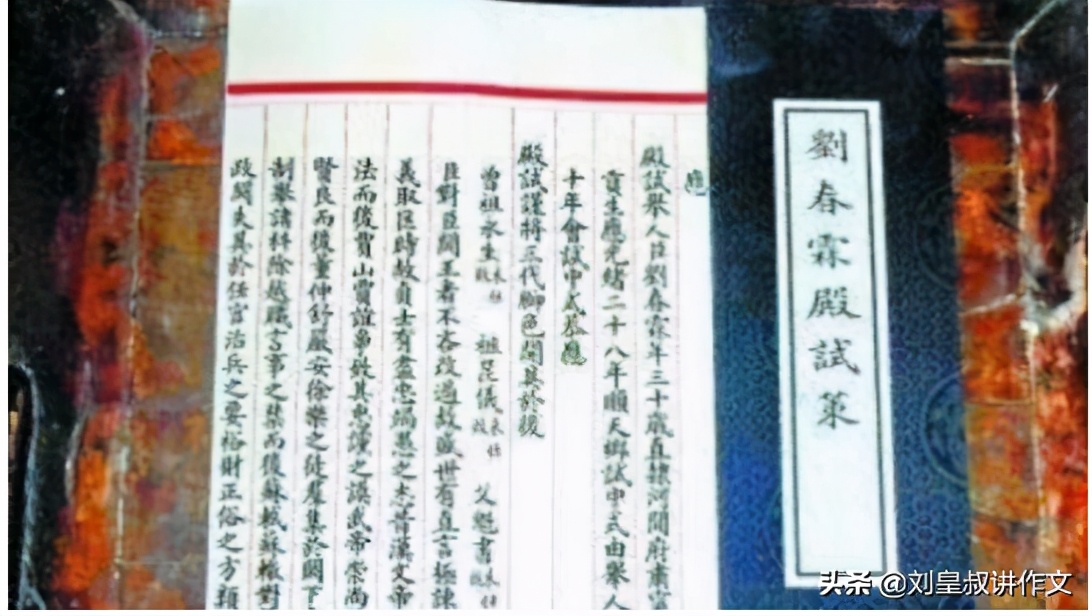 劉春霖殿試策
應
殿試舉人臣劉春霖年三十歲直隸河間府肅寧
貢生應光緒二十八年順天鄉試中式由舉人
十年會試中式恭應
殿試謹將三代腳色開具於後
曾祖永生未仕故 祖昆儀未仕故 父魁書未仕
臣對臣聞王者不吝改過故盛世有直言極諫
義取匡時故貞士有盡忠竭愚之志昔漢文帝
法而後賈山賈誼爭致其忠讜之謨武帝崇尚
賢良而後董仲舒嚴安徐樂之徒羣集於闕下
制舉諸科除越職言事之禁而後蘇軾蘇轍對
政闕失其於任官治兵之要裕財正俗之方類
头条 @刘皇叔讲作文